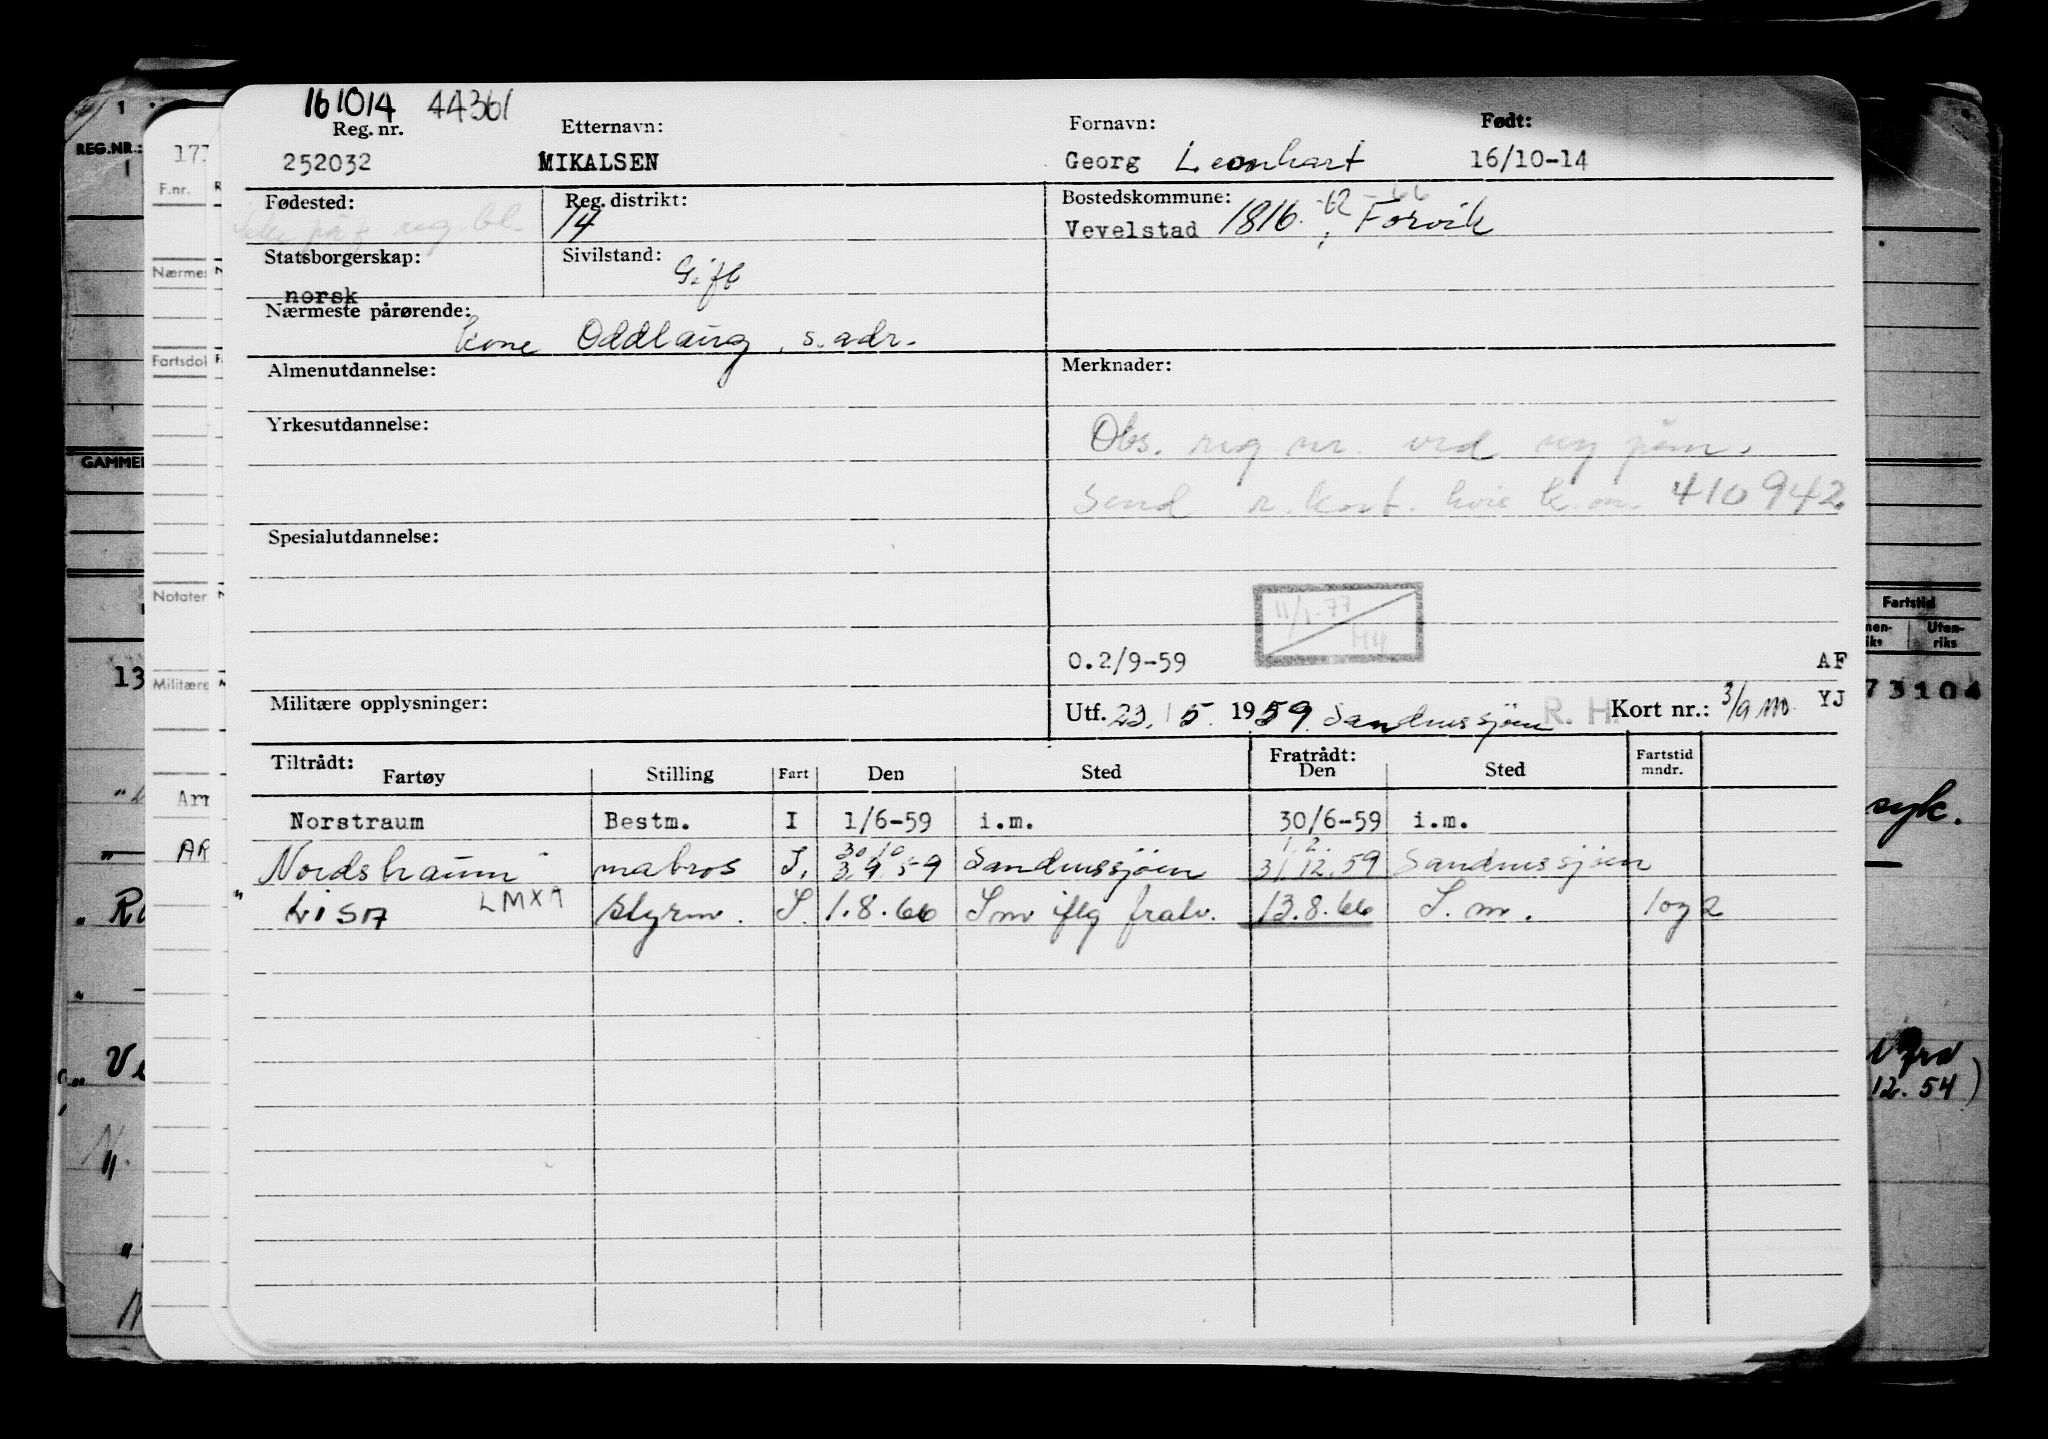 161014 44361
Reg. nr. Etternavn: Fornavn: Født:
252032 MIKALSEN Georg Leonhart 16/10-14
Fødested: Reg. distrikt: 14 Bostedskommune: -62 -66
reg. bl. Vevelstad 1816. ; Forvik
Statsborgerskap: norsk Sivilstand: Gift
Nærmeste pårørende: kone Oddlaug, s. adr.
Almenutdannelse: Merknader:
Yrkesutdannelse:
Obs. reg nr. ved ny påm.
Send r. kort. hvis k.m. 410942
Spesialutdannelse:
11/1-77
HH
0.2/9-59 AF
Militære opplysninger: Utf. 23. 5. 1959. Sandnessjøen R. H. Kort nr.: 3/9 m. YJ
Tiltrådt: Fratrådt: Fartstid mndr.
Fartøy Stilling Fart Den Sted Den Sted
Norstraum Bestm. I 1/6-59 i.m. 30/6-59 i.m.
30 10 1. 2.
Nordstraum matros I. 3.9.59 Sandnessjøen 31.12.59 Sandnessjøen
" LISA LMXA styrm. I. 1.8.66 I m iflg fratr. 13.8.66 I. m. 1 og 2
1
REG.NR.:
1
GAMMEL
13
177
F.nr.
Nærmes
Fartsdok
Notater
Militære
Arr
AR
Fartstid
Uten-
riks
73104
syk.
12. 54)